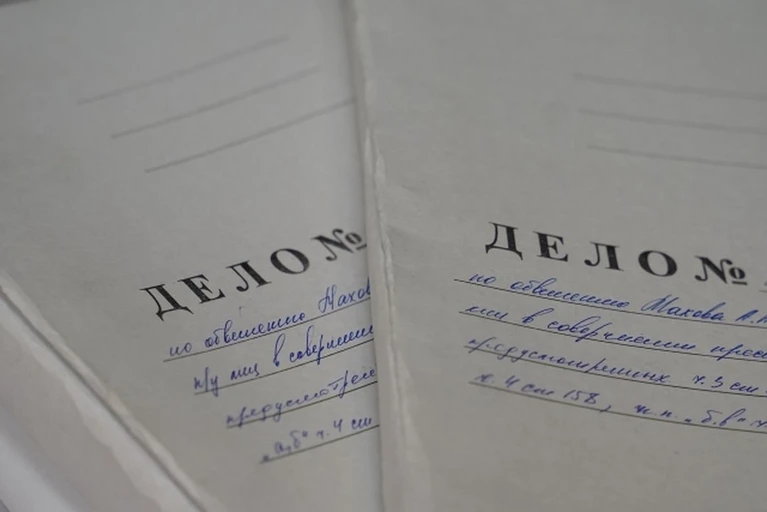 ДЕЛО №
по обвинению Махов
п/у лиц в совершении
предусмотрен
„а,б" ч. 4 ст
ДЕЛО №
по обвинению Махова А.
лиц в совершении прес
предусмотренных ч. 3 ст.
ч. 4 ст 158, п.п. „б.в" ч.